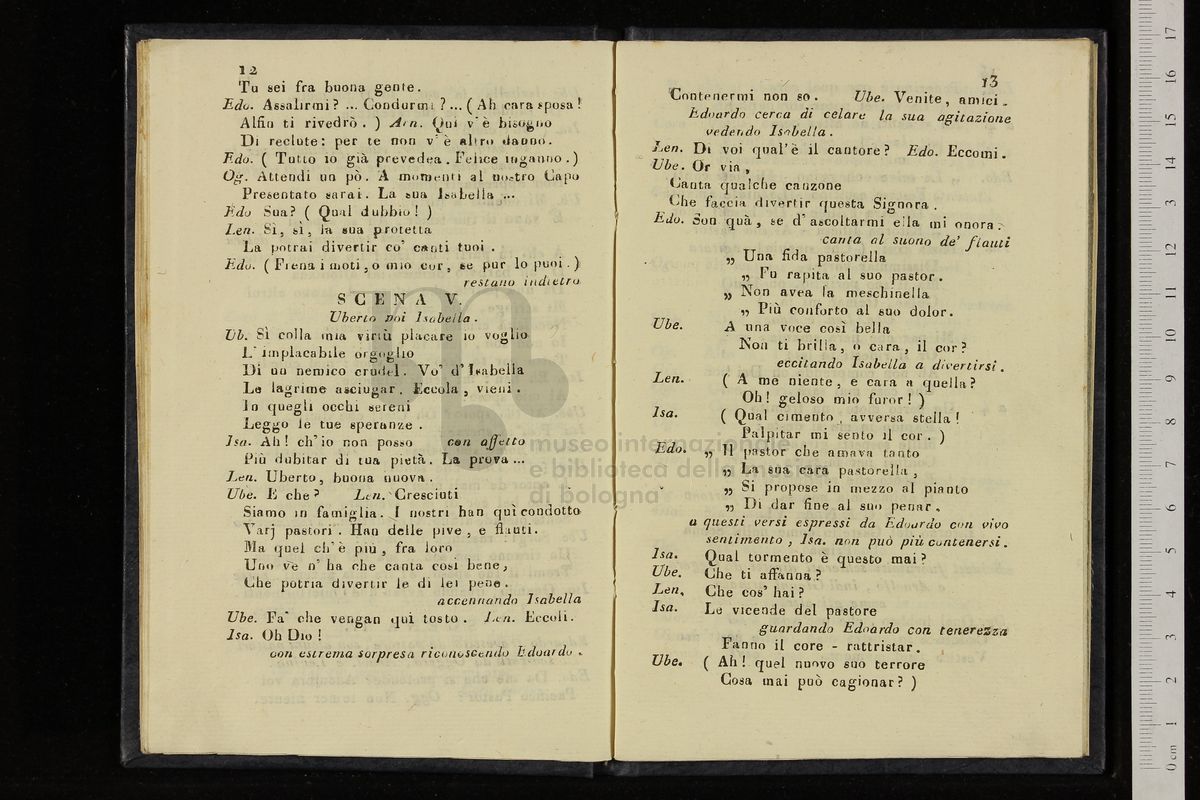 12
Tu sei fra buona gente.
Edo. Assalirmi? ... Condurmi?... ( Ah cara sposa!
Alfin ti rivedrò. ) Arn. Qui v'è bisogno
Di reclute: per te non v'è altro danno.
Edo. ( Tutto io già prevedea. Felice inganno. )
Og. Attendi un pò. A momenti al nostro Capo
Presentato sarai. La sua Isabella ...
Edo Sua? ( Qual dubbio! )
Len. Sì, sì, la sua protetta
La potrai divertir co' canti tuoi.
Edo. ( Frena i moti, o mio cor, se pur lo puoi. )
restano indietro
SCENA V.
Uberto poi Isabella.
Ub. Sì colla mia virtù placare io voglio
L'implacabile orgoglio
Di un nemico crudel. Vo' d'Isabella
Le lagrime asciugar. Eccola, vieni.
In quegli occhi sereni
Leggo le tue speranze.
Isa. Ah! ch'io non posso con affetto
Più dubitar di tua pietà. La prova ...
Len. Uberto, buona nuova.
Ube. E che? Len. Cresciuti
Siamo in famiglia. I nostri han quì condotto
Varj pastori. Han delle pive, e flauti.
Ma quel ch'è più, fra loro
Uno ve n'ha che canta così bene,
Che potria divertir le di lei pene.
accennando Isabella
Ube. Fa' che vengan qui tosto. Len. Eccoli.
Isa. Oh Dio!
con estrema sorpresa riconoscendo Edoardo.
13
Contenermi non so. Ube. Venite, amici.
Edoardo cerca di celare la sua agitazione
vedendo Isabella.
Len. Di voi qual'è il cantore? Edo. Eccomi.
Ube. Or via,
Canta qualche canzone
Che faccia divertir questa Signora.
Edo. Son quà, se d'ascoltarmi ella mi onora.
canta al suono de' flauti
„ Una fida pastorella
„ Fu rapita al suo pastor.
„ Non avea la meschinella
„ Più conforto al suo dolor.
Ube. A una voce così bella
Non ti brilla, o cara, il cor?
eccitando Isabella a divertirsi.
Len. ( A me niente, e cara a quella?
Oh! geloso mio furor! )
Isa. ( Qual cimento, avversa stella!
Palpitar mi sento il cor. )
Edo. „ Il pastor che amava tanto
„ La sua cara pastorella,
„ Si propose in mezzo al pianto
„ Di dar fine al suo penar.
a questi versi espressi da Edoardo con vivo
sentimento, Isa. non può più contenersi.
Isa. Qual tormento è questo mai?
Ube. Che ti affanna?
Len, Che cos'hai?
Isa. Le vicende del pastore
guardando Edoardo con tenerezza
Fanno il core - rattristar.
Ube. ( Ah! quel nuovo suo terrore
Cosa mai può cagionar? )
museo internazionale
e biblioteca della musica
di bologna
0 cm 1 2 3 4 5 6 7 8 9 10 11 12 13 14 15 16 17